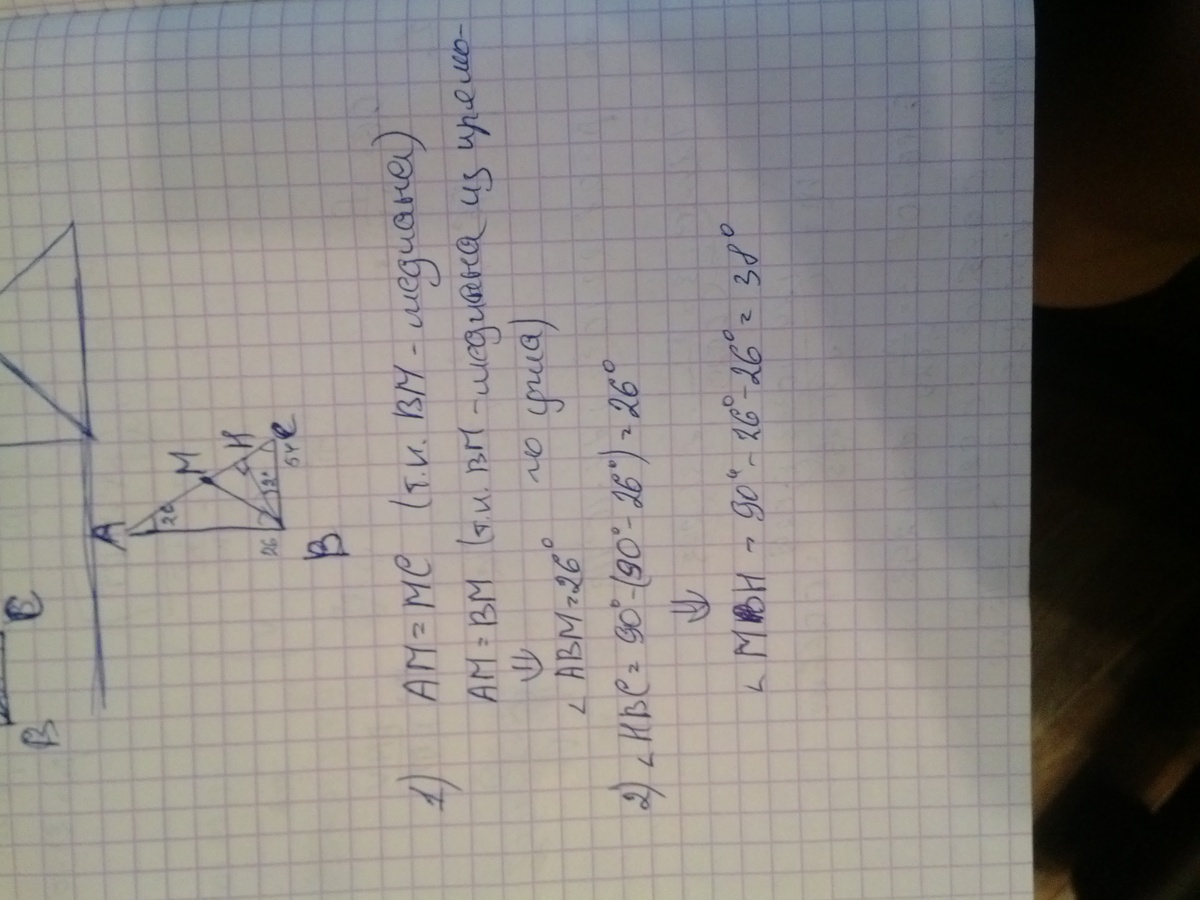 B C
A
M
H
C
B
26
26
64
1) AM = MC (т.к. BM - медиана)
AM = BM (т.к. BM - медиана из прямо-
⇓ го угла)
∠ ABM = 26°
2) ∠ HBC = 90° - (90° - 26°) = 26°
⇓
∠ MBH = 90° - 26° - 26° = 38°